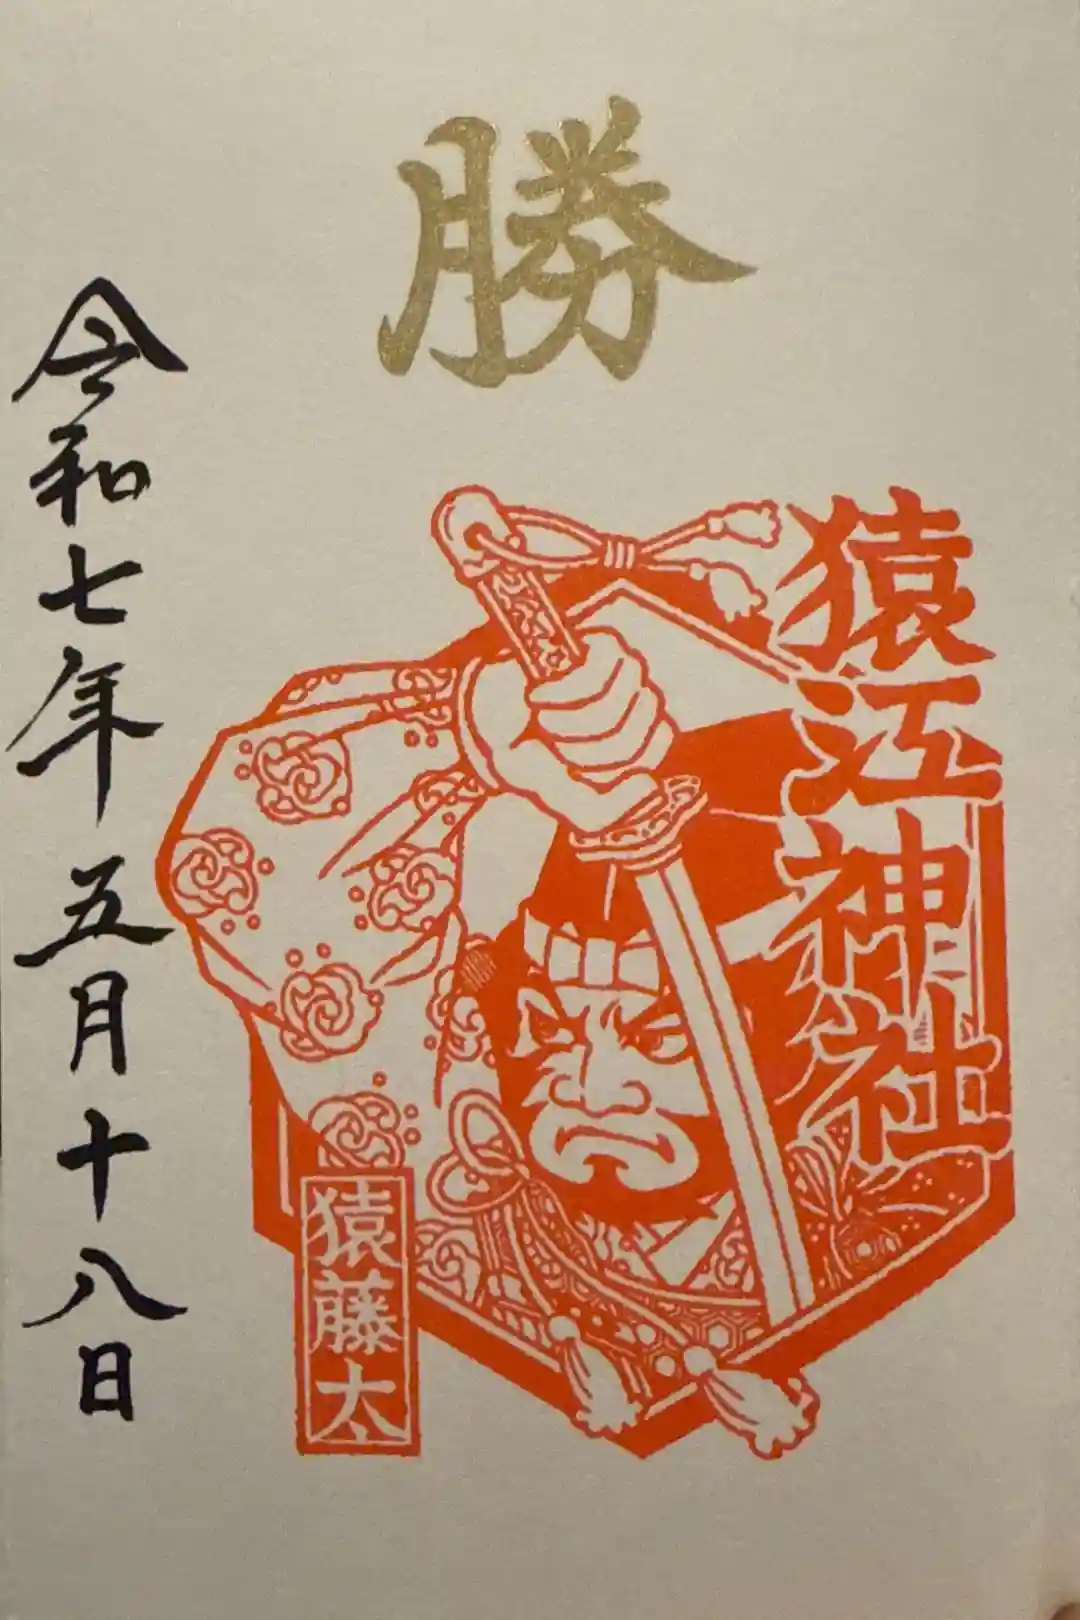 勝
猿江神社
猿藤太
令和七年五月十八日